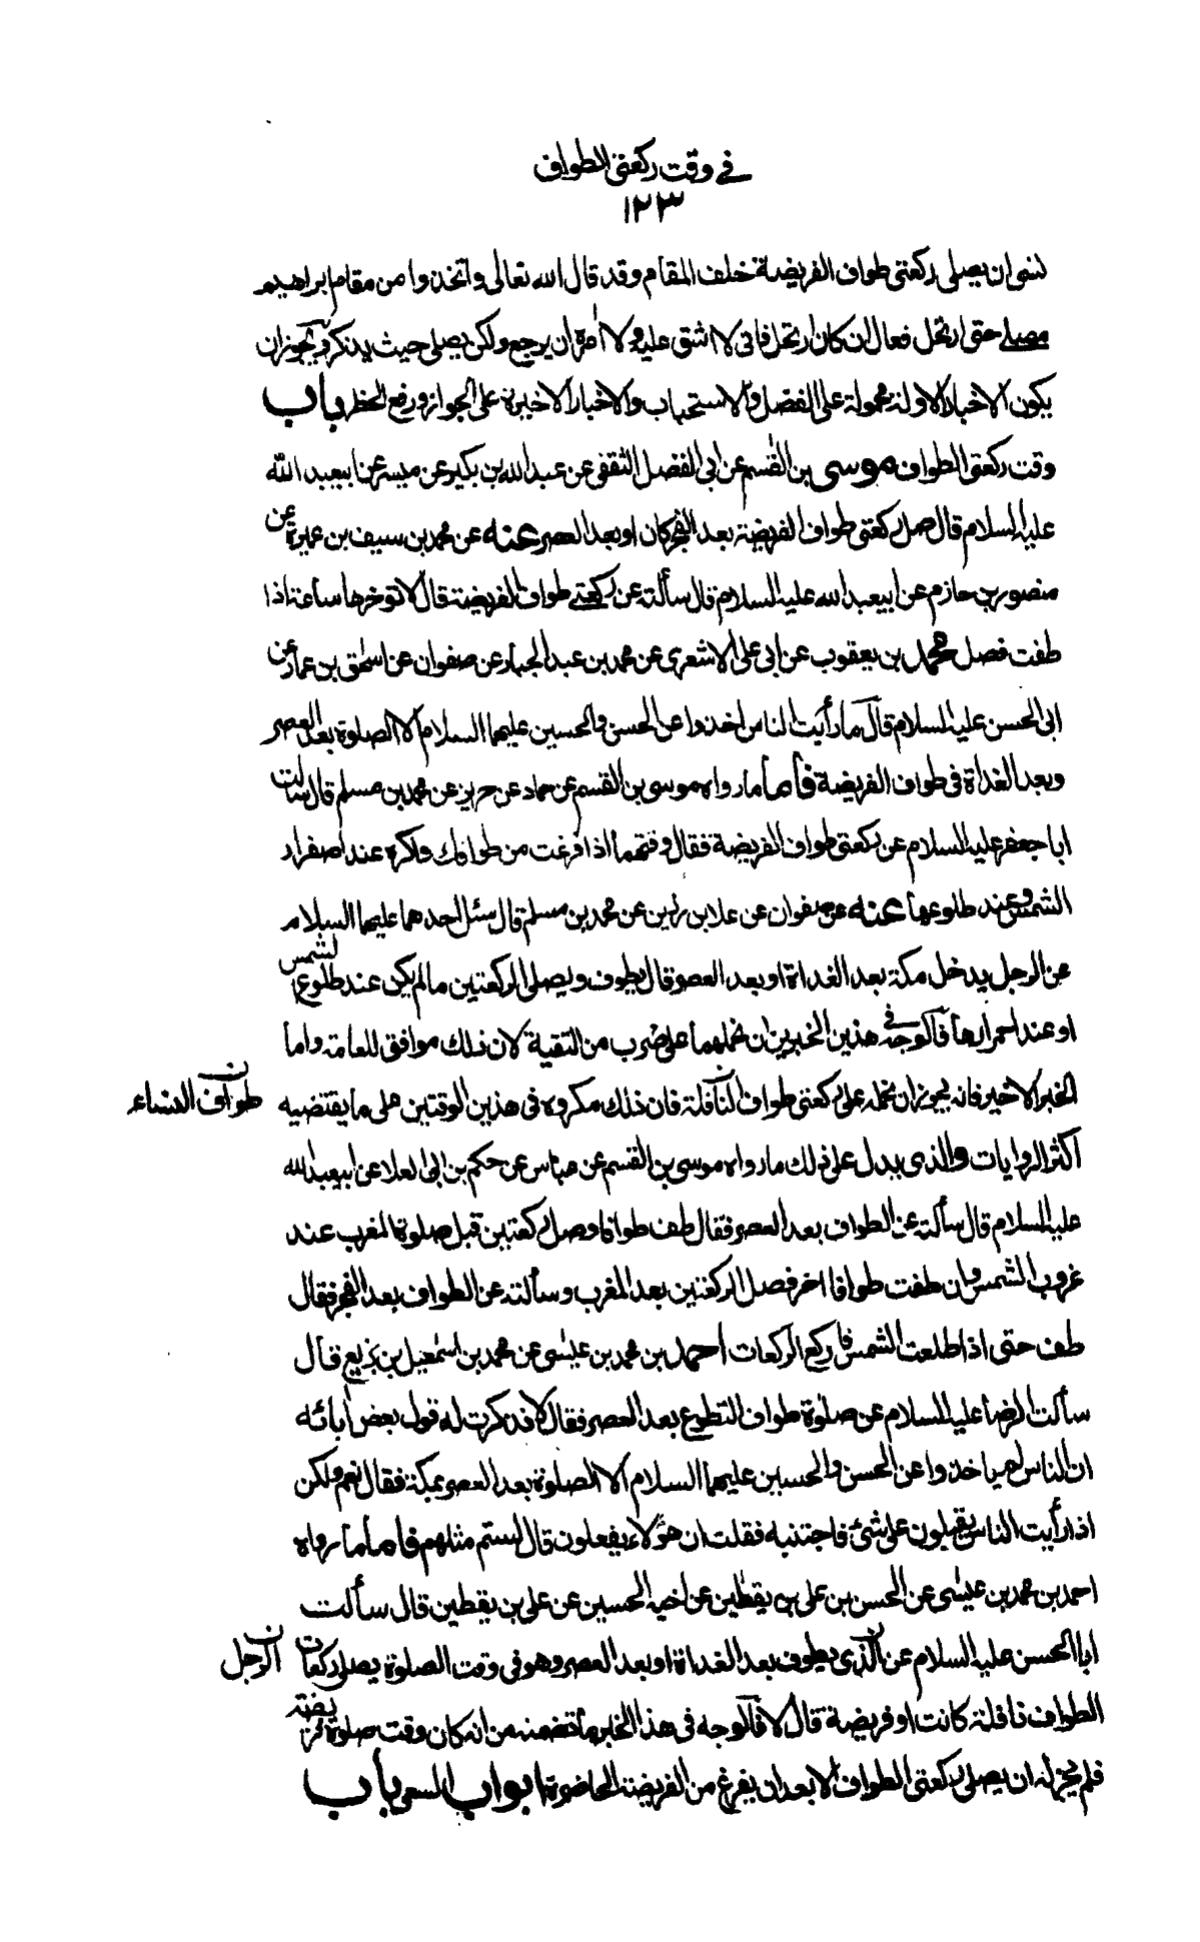 في وقت ركعتي الطواف
١٢٣
نسي ان يصلي ركعتي طواف الفريضة خلف المقام وقد قال الله تعالى واتخذوا من مقام ابراهيم
مصلى حتى ارتحل فقال ان كان ارتحل فاني لا اشق عليه ولا آمره ان يرجع ولكن يصلي حيث يذكر ويجوز ان
يكون الاخبار الاولة محمولة على الفضل والاستحباب والاخبار الاخيرة على الجواز ورفع الحظر باب
وقت ركعتي الطواف موسى بن القسم عن ابي الفضل الثقفي عن عبد الله بن بكير عن ميسر عن ابيعبد الله
عليه السلام قال صل ركعتي طواف الفريضة بعد الفجر كان او بعد العصر عنه عن محمد بن سيف بن عميرة عن
منصور بن حازم عن ابيعبد الله عليه السلام قال سألته عن ركعتي طواف الفريضة قال لا توخرها ساعة اذا
طفت فصل محمد بن يعقوب عن ابي علي الاشعري عن محمد بن عبد الجبار عن صفوان عن اسحق بن عمار عن
ابي الحسن عليه السلام قال ما رأيت الناس اخذوا عن الحسن والحسين عليهما السلام الا الصلوة بعد العصر
وبعد الغداة في طواف الفريضة فأما ما رواه موسى بن القسم عن حماد عن حريز عن محمد بن مسلم قال سالت
ابا جعفر عليه السلام عن ركعتي طواف الفريضة فقال وقتهما اذا فرغت من طوافك واكره عند اصفرار
الشمس وعند طلوعها عنه عن صفوان عن علا بن رزين عن محمد بن مسلم قال سئل احدهما عليهما السلام
عن الرجل يدخل مكة بعد الغداة او بعد العصر قال يطوف ويصلي الركعتين ما لم يكن عند طلوع الشمس
او عند احمرارها فالوجه في هذين الخبرين ان نحملهما على ضرب من التقية لان ذلك موافق للعامة واما
الخبر الاخير فانه يجوز ان نحمله على ركعتي طواف النافلة فان ذلك مكروه في هذين الوقتين على ما يقتضيه
طواف النساء ن
اكثر الروايات والذي يدل على ذلك ما رواه موسى بن القسم عن عباس عن حكم بن ابي العلا عن ابيعبد الله
عليه السلام قال سألته عن الطواف بعد العصر فقال طف طوافا وصل ركعتين قبل صلوة المغرب عند
غروب الشمس وان طفت طوافا اخر فصل الركعتين بعد المغرب وسألته عن الطواف بعد الفجر فقال
طف حتى اذا طلعت الشمس فاركع الركعات احمد بن محمد بن عيسى عن محمد بن اسمعيل بن بزيع قال
سألت الرضا عليه السلام عن صلوة طواف التطوع بعد العصر فقال لا فذكرت له قول بعض آبائه
ان الناس لم ياخذوا عن الحسن والحسين عليهما السلام الا الصلوة بعد العصر بمكة فقال نعم ولكن
اذا رأيت الناس يقبلون على شئ فاجتنبه فقلت ان هؤلاء يفعلون قال لستم مثلهم فاما ما رواه
احمد بن محمد بن عيسى عن الحسن بن علي بن يقطين عن اخيه الحسين عن علي بن يقطين قال سألت
ابا الحسن عليه السلام عن الذي يطوف بعد الغداة او بعد العصر وهو في وقت الصلوة يصلي ركعات
الرجل ن
الطواف نافلة كانت او فريضة قال لا فالوجه في هذا الخبر ما تضمنه من انه كان وقت صلوة فريضة
فلم يجز له ان يصلي ركعتي الطواف الا بعد ان يفرغ من الفريضة الحاضرة ابواب السعي باب